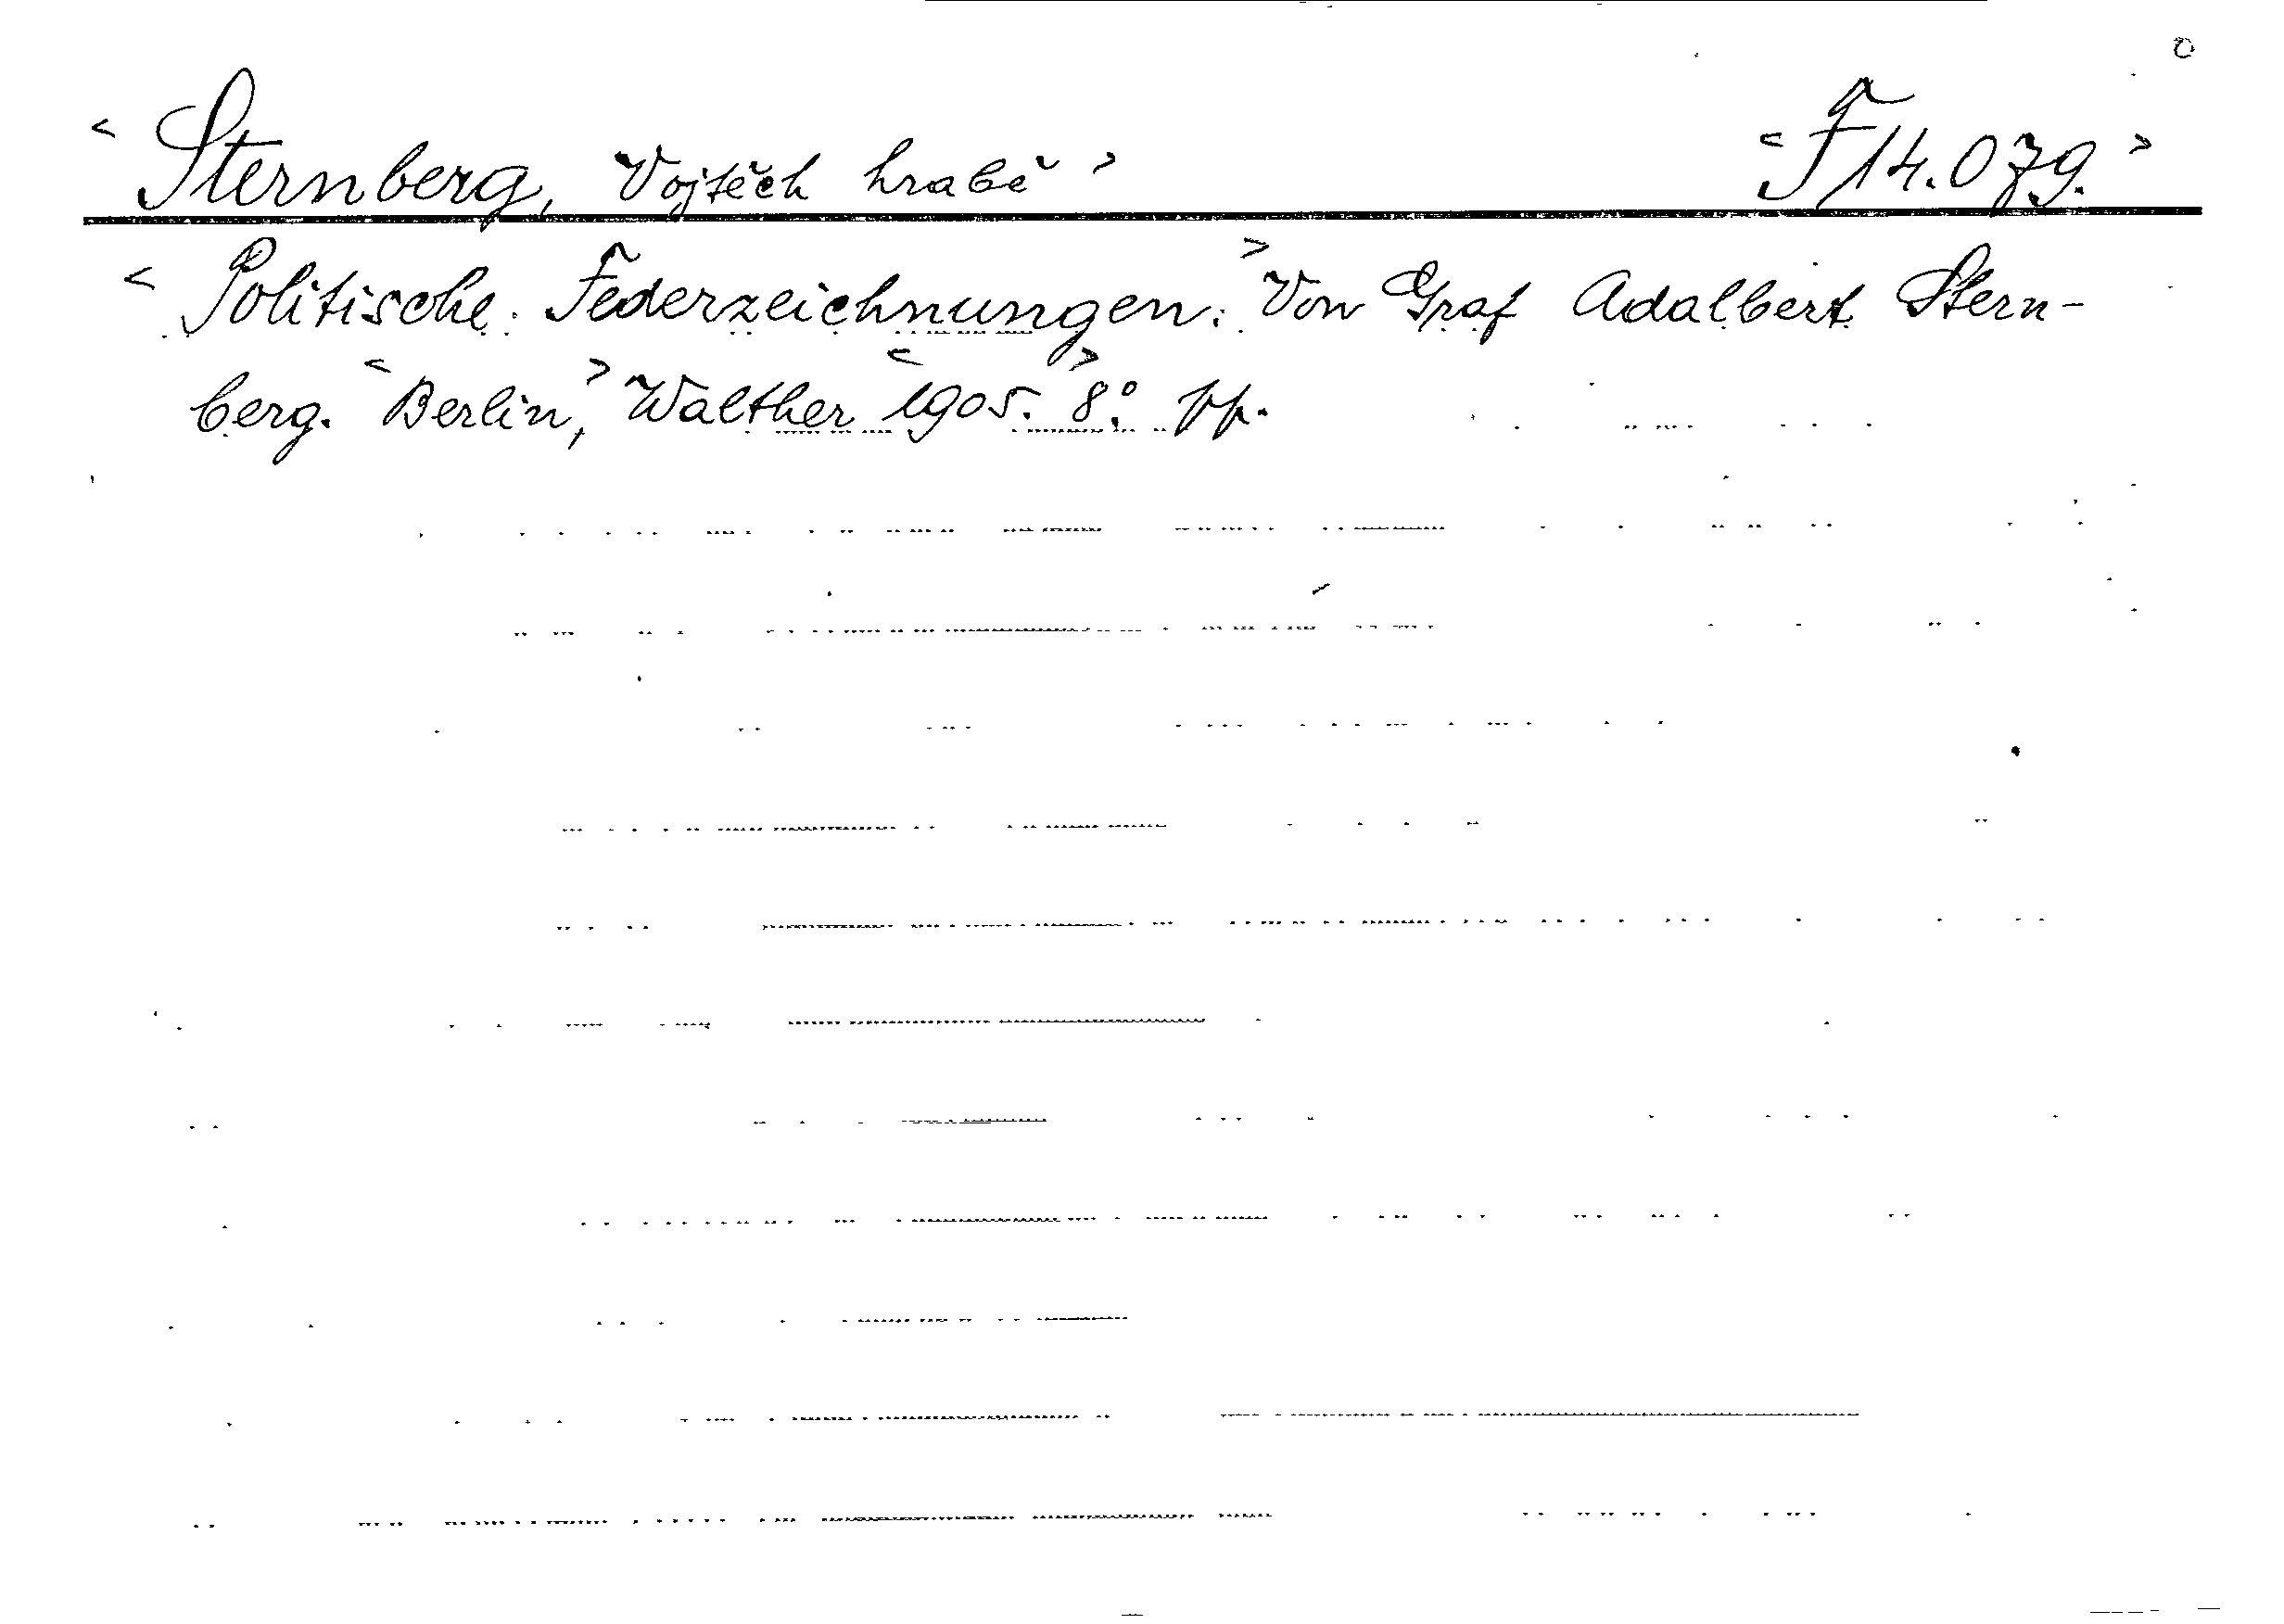 < Sternberg, Vojtěch hrabě > < F 14.079. >
< Politische Federzeichnungen. > Von Graf Adalbert Stern-
berg. < Berlin, > Walther < 1905. > 8°. pp.